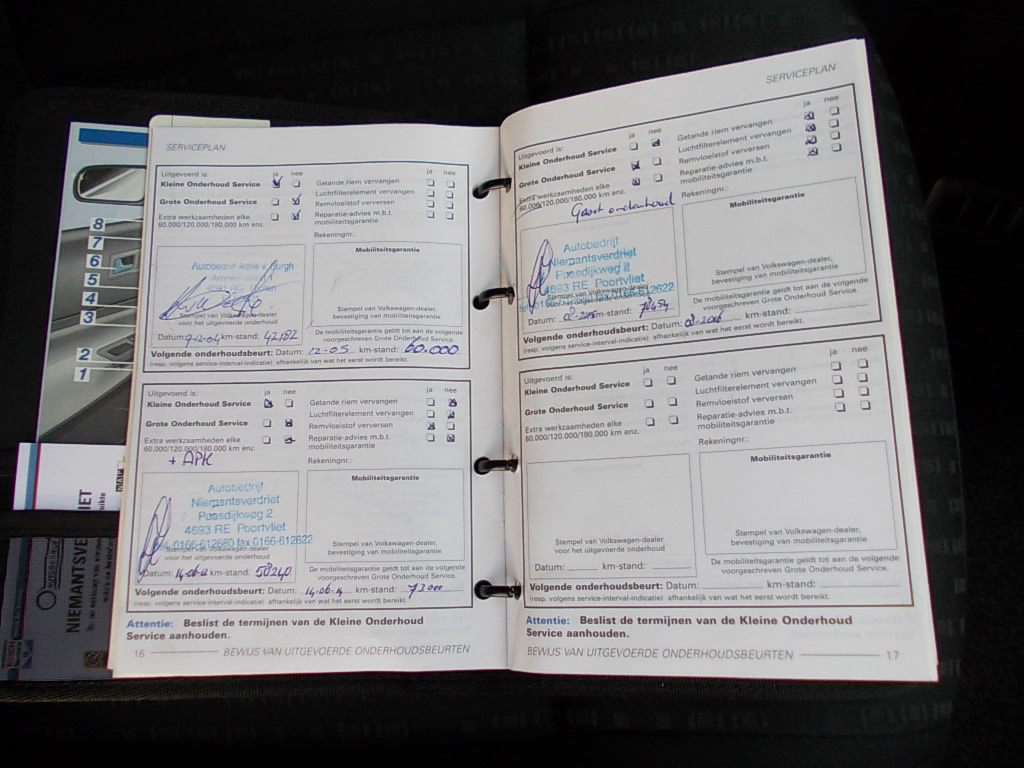 SERVICEPLAN
Uitgevoerd is: ja nee ja nee
Kleine Onderhoud Service Getande riem vervangen
Grote Onderhoud Service Luchtfilterelement vervangen
Extra werkzaamheden elke Remvloeistof verversen
60.000/120.000/180.000 km enz. Reparatie-advies m.b.t.
mobiliteitsgarantie
Rekeningnr.:
Autobedrijf
Mobiliteitsgarantie
Stempel van Volkswagen-dealer
voor het uitgevoerde onderhoud
Stempel van Volkswagen-dealer,
bevestiging van mobiliteitsgarantie
Datum: 9-12-04 km-stand: 42182
De mobiliteitsgarantie geldt tot aan de volgende
voorgeschreven Grote Onderhoud Service.
Volgende onderhoudsbeurt: Datum: 12-05 km-stand: 60.000
(resp. volgens service-interval-indicatie) afhankelijk van wat het eerst wordt bereikt.
Uitgevoerd is: ja nee ja nee
Kleine Onderhoud Service Getande riem vervangen
Grote Onderhoud Service Luchtfilterelement vervangen
Extra werkzaamheden elke Remvloeistof verversen
60.000/120.000/180.000 km enz. Reparatie-advies m.b.t.
mobiliteitsgarantie
+ APK
Rekeningnr.:
Autobedrijf
Niemantsverdriet
Paasdijkweg 2
4693 RE Poortvliet
0166-612680 fax 0166-612622
Mobiliteitsgarantie
Stempel van Volkswagen-dealer
voor het uitgevoerde onderhoud
Stempel van Volkswagen-dealer,
bevestiging van mobiliteitsgarantie
Datum: km-stand: 58240
De mobiliteitsgarantie geldt tot aan de volgende
voorgeschreven Grote Onderhoud Service.
Volgende onderhoudsbeurt: Datum: 14-06-14 km-stand: 73000
(resp. volgens service-interval-indicatie) afhankelijk van wat het eerst wordt bereikt.
Attentie: Beslist de termijnen van de Kleine Onderhoud
Service aanhouden.
16 BEWIJS VAN UITGEVOERDE ONDERHOUDSBEURTEN
SERVICEPLAN
Uitgevoerd is: ja nee ja nee
Kleine Onderhoud Service Getande riem vervangen
Grote Onderhoud Service Luchtfilterelement vervangen
Extra werkzaamheden elke Remvloeistof verversen
60.000/120.000/180.000 km enz. Reparatie-advies m.b.t.
mobiliteitsgarantie
Groot onderhoud
Rekeningnr.:
Autobedrijf
Niemantsverdriet
Paasdijkweg 2
4693 RE Poortvliet
fax 0166-612622
Mobiliteitsgarantie
Stempel van Volkswagen-dealer
Stempel van Volkswagen-dealer,
bevestiging van mobiliteitsgarantie
Datum: km-stand:
De mobiliteitsgarantie geldt tot aan de volgende
voorgeschreven Grote Onderhoud Service.
Volgende onderhoudsbeurt: Datum: km-stand:
(resp. volgens service-interval-indicatie) afhankelijk van wat het eerst wordt bereikt.
Uitgevoerd is: ja nee ja nee
Kleine Onderhoud Service Getande riem vervangen
Grote Onderhoud Service Luchtfilterelement vervangen
Extra werkzaamheden elke Remvloeistof verversen
60.000/120.000/180.000 km enz. Reparatie-advies m.b.t.
mobiliteitsgarantie
Rekeningnr.:
Mobiliteitsgarantie
Stempel van Volkswagen-dealer
voor het uitgevoerde onderhoud
Stempel van Volkswagen-dealer,
bevestiging van mobiliteitsgarantie
Datum: km-stand:
De mobiliteitsgarantie geldt tot aan de volgende
voorgeschreven Grote Onderhoud Service.
Volgende onderhoudsbeurt: Datum: km-stand:
(resp. volgens service-interval-indicatie) afhankelijk van wat het eerst wordt bereikt.
Attentie: Beslist de termijnen van de Kleine Onderhoud
Service aanhouden.
BEWIJS VAN UITGEVOERDE ONDERHOUDSBEURTEN 17
8
7
6
5
4
3
2
1
NIEMANTSVE